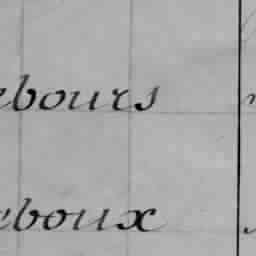 ebours
eboux